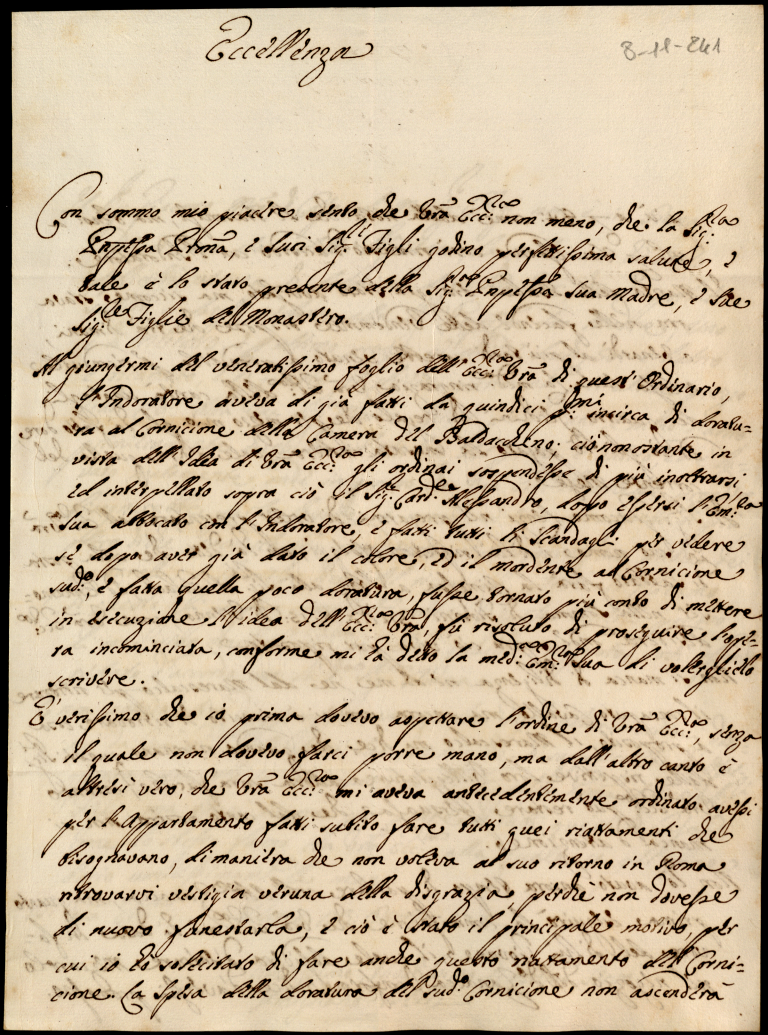 Eccellenza
8-11-841
Con sommo mio piacere sento, che Vrã Ecc.za non meno, che la Sig.ra
Enpessa Pronã, e suoi Sig.li Figli godino perfettissima salute, e
tale è lo stato presente della Sig.ra Enpessa sua Madre, e sue
Sig.re Figlie del Monastero.
Al giungermi del veneratissimo foglio dell'Ecc.za Vrã di quest'Ordinario,
l'Indoratore aveva di già fatti da quindici p.mi incirca di doratu=
ra al Cornicione della Camera del Baldachino; ciò nonostante in
vista dell'Idea di Vrã Ecc.za gli ordinai sospendesse di più inoltrarsi
ed interpellato sopra ciò il Sig.r Card.le Alessandro, doppo essersi l'Em.za
sua abboccato con l'Indoratore, e fatti tutti li Scandagli per vedere
se dopo aver già dato il colore, ed il mordente al Cornicione
sud.o, e fatta quella poco doratura, fusse tornato più conto di mettere
in esecuzione l'idea dell'Ecc.za Vrã, fù risoluto di proseguire l'ope=
ra incominciata, conforme mi hà detto la med.a Em.za Sua di volerglielo
scrivere.
È verissimo che io prima dovevo aspettare l'ordine di Vrã Ecc.za, senza
il quale non dovevo farci porre mano, ma dall'altro canto è
altresì vero, che Vrã Ecc.za mi aveva antecedentemente ordinato avessi
per l'Appartamento fatti subito fare tutti quei riattamenti che
bisognavano, di maniera che non voleva al suo ritorno in Roma
ritrovarvi vestigia veruna della disgrazia, perchè non dovesse
di nuovo funestarla, e ciò è stato il principale motivo, per
cui io hò sollecitato di fare anche questo riattamento del Corni=
cione. La spesa della doratura del sud.o Cornicione non ascenderà